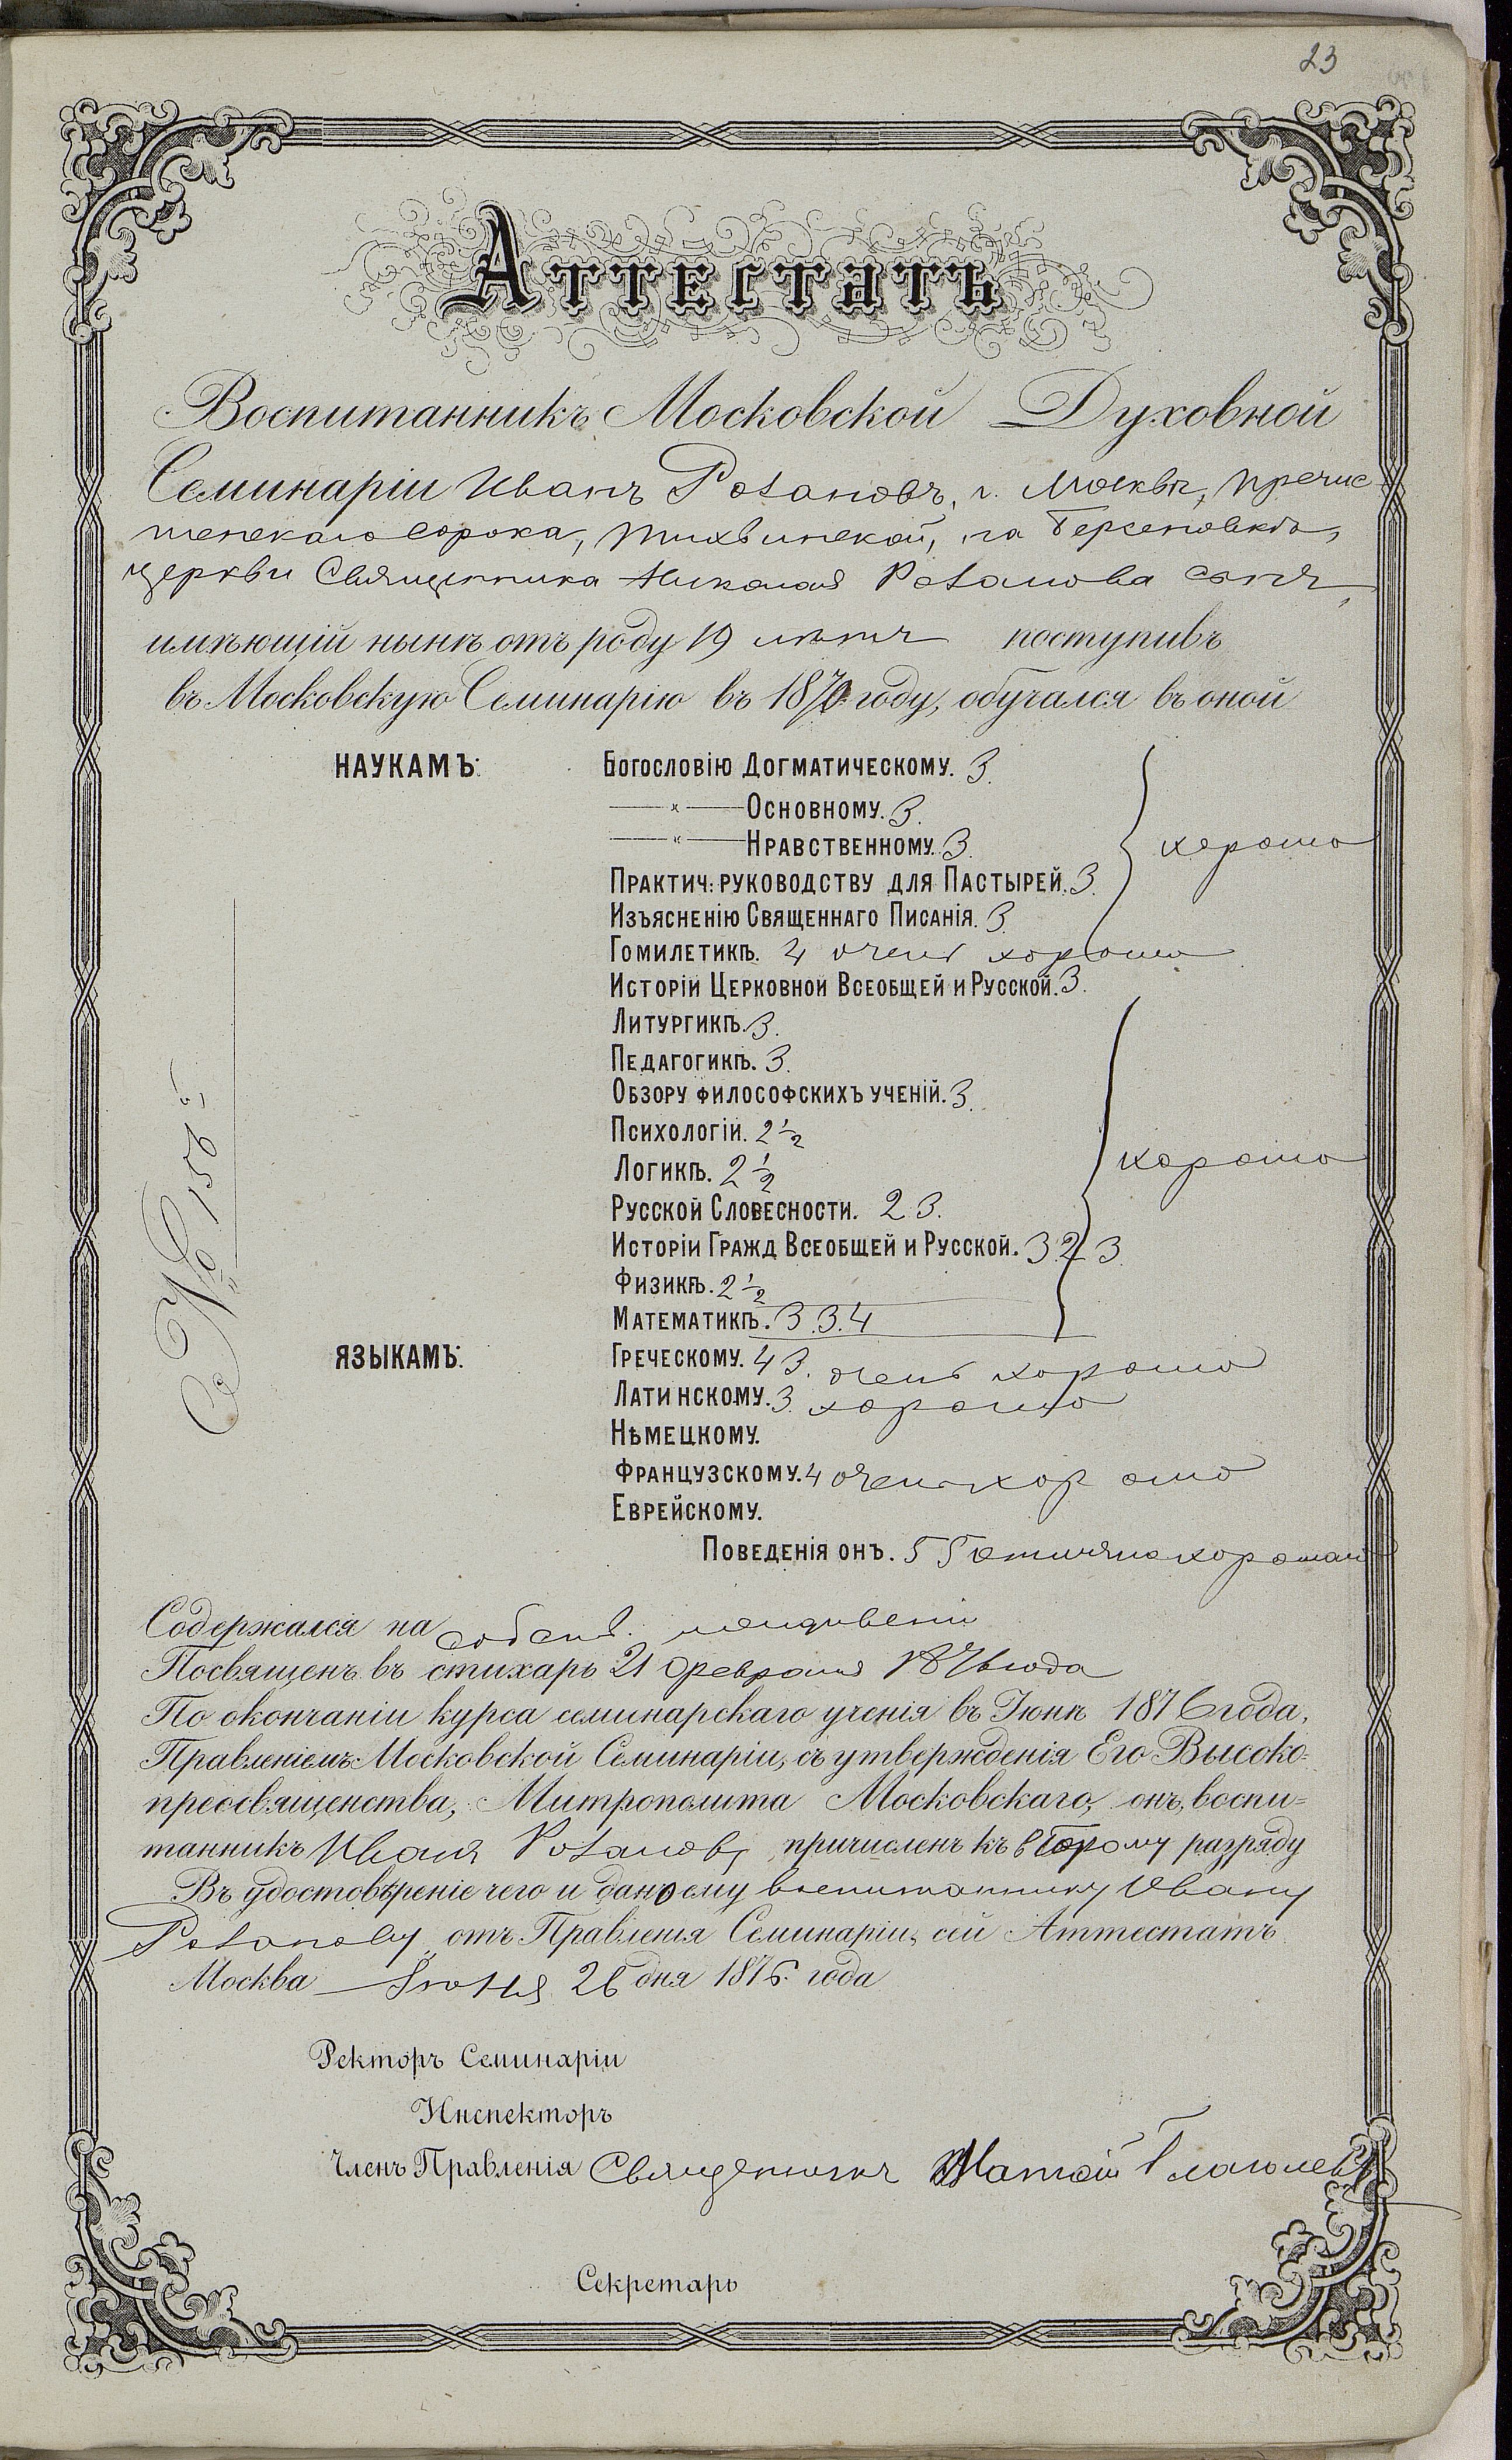 23
Аттестатъ
Воспитанникъ Московской Духовной
Семинаріи Иванъ Розановъ, г. Москвы, Пречис
тенскаго сорока, Тихвинской, на Берсеновкѣ,
церкви Священника Николая Розанова сынъ,
имѣющій нынѣ отъ роду 19 лѣтъ поступивъ
въ Московскую Семинарію въ 1870 году, обучался въ оной
НАУКАМЪ: Богословію Догматическому. 3.
—«— Основному. 3.
—«— Нравственному. 3. хорошо
Практич: руководству для Пастырей. 3.
Изъясненію Священнаго Писанія. 3.
Гомилетикѣ. 4 очень хорошо
Исторіи Церковной Всеобщей и Русской. 3.
Литургикѣ. 3.
Педагогикѣ. 3.
Обзору философскихъ ученій. 3.
Психологіи. 2 1/2
Логикѣ. 2 1/2 хорошо
Русской Словесности. 2 3.
Исторіи Гражд Всеобщей и Русской. 3 2 3.
Физикѣ. 2 1/2
Математикѣ. 3. 3. 4
ЯЗЫКАМЪ: Греческому. 4 3. очень хорошо
Латинскому. 3. хорошо
Нѣмецкому.
Французскому. 4 очень хорошо
Еврейскому.
Поведенія онъ. 5 5 отлично хорошаго
№ 156
Содержался на собств. иждивеніи
Посвященъ въ стихарь 21 февраля 1876 года
По окончаніи курса семинарскаго ученія въ Іюнѣ 1876 года,
Правленіемъ Московской Семинаріи, съ утвержденія Его Высоко-
преосвященства, Митрополита Московскаго, онъ, воспи=
танникъ Иванъ Розановъ, причисленъ къ второму разряду
Въ удостовѣреніе чего и дано ему воспитаннику Ивану
Розанову отъ Правленія Семинаріи, сей Аттестатъ.
Москва Іюня 26 дня 1876 года
Ректоръ Семинаріи
Инспекторъ
Членъ Правленія Священникъ Матѳій Глаголевъ
Секретарь